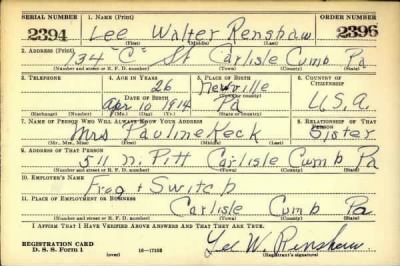 SERIAL NUMBER 1. NAME (Print) ORDER NUMBER
2394 Lee Walter Renshaw 2396
(First) (Middle) (Last)
2. ADDRESS (Print)
134 "C" St Carlisle Cumb Pa
(Number and street or R. F. D. number) (Town) (County) (State)
3. TELEPHONE 4. AGE IN YEARS 5. PLACE OF BIRTH 6. COUNTRY OF CITIZENSHIP
26 Newville
DATE OF BIRTH (Town or county)
Apr 10 1914 Pa U.S.A.
(Exchange) (Number) (Mo.) (Day) (Yr.) (State or country)
7. NAME OF PERSON WHO WILL ALWAYS KNOW YOUR ADDRESS 8. RELATIONSHIP OF THAT PERSON
Mrs Pauline Keck Sister
(Mr., Mrs., Miss) (First) (Middle) (Last)
9. ADDRESS OF THAT PERSON
511 N. Pitt Carlisle Cumb Pa
(Number and street or R. F. D. number) (Town) (County) (State)
10. EMPLOYER'S NAME
Frog + Switch
11. PLACE OF EMPLOYMENT OR BUSINESS
Carlisle Cumb Pa.
(Number and street or R. F. D. number) (Town) (County) (State)
I AFFIRM THAT I HAVE VERIFIED ABOVE ANSWERS AND THAT THEY ARE TRUE.
REGISTRATION CARD
D. S. S. Form 1 (over) Lee W. Renshaw
(Registrant's signature)